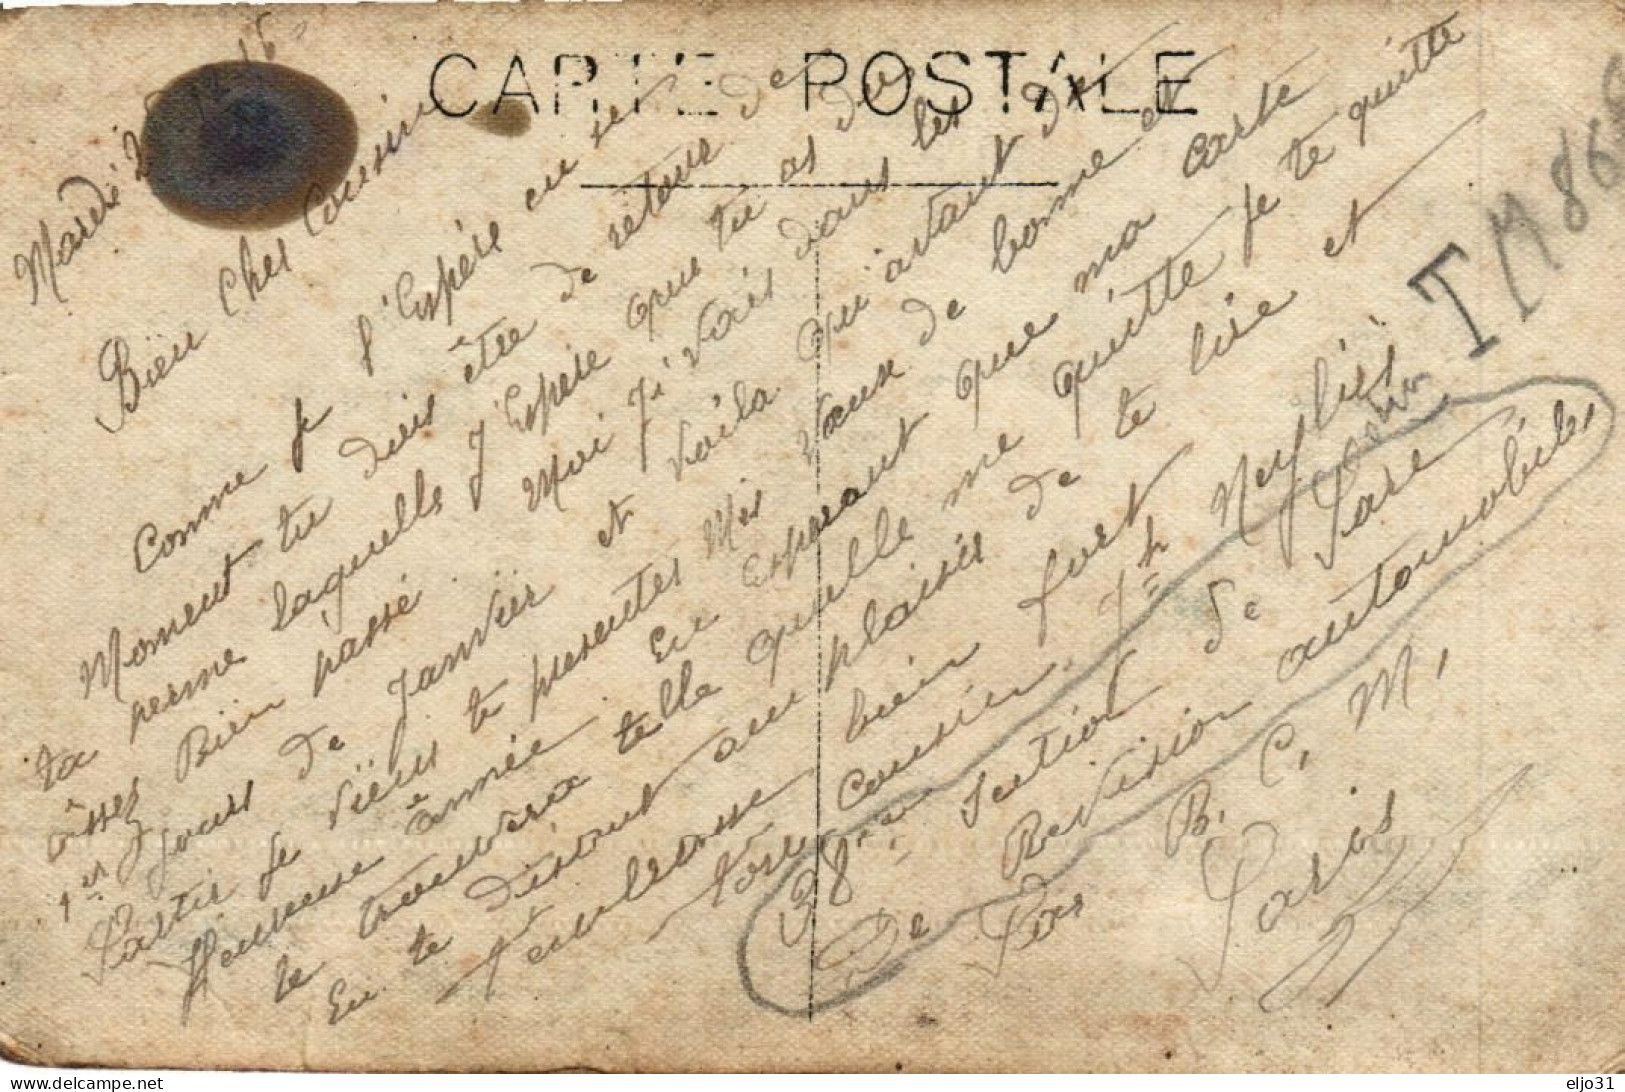 CARTE POSTALE
Mardi
Bien Cher Cousin
Comme Je l'Espère en se
Moment tu dois être de retour de
ta perme laquelle J'Espère que tu as du
assez Bien passé Moi J'i vais dans les
1ers Jours de Janvier et voila qu'avant de
Partir Je viens te presentes Mes vœux de bonne et
Heureuse année. En Esperant que ma carte
te trouvera telle quelle me quitte Je te quitte
En te disant au plaisir de te lire et
T'embrasse bien fort
ton cousin. Jh Neyliès
38ème section de Parc
De Revision automobiles
Par B. C. M,
Paris
T M 86
Delcampe.net
eljo31